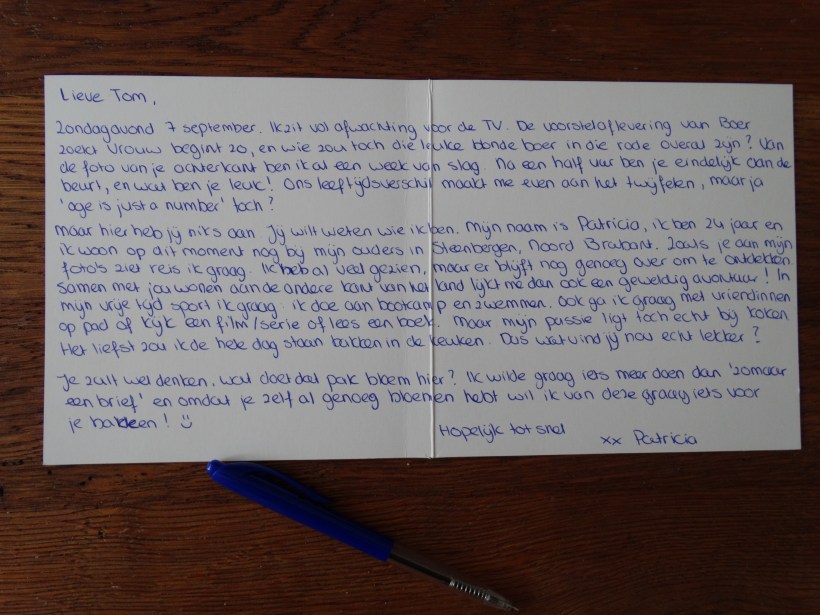 Lieve Tom,
Zondagavond 7 september. Ik zit vol afwachting voor de TV. De voorstelaflevering van Boer
zoekt Vrouw begint zo, en wie zou toch die leuke blonde boer in die rode overal zijn? Van
de foto van je achterkant ben ik al een week van slag. Na een half uur ben je eindelijk aan de
beurt, en wat ben je leuk! Ons leeftijdsverschil maakt me even aan het twijfelen, maar ja
'age is just a number' toch?
Maar hier heb jij niks aan. Jij wilt weten wie ik ben. Mijn naam is Patricia, ik ben 24 jaar en
ik woon op dit moment nog bij mijn ouders in Steenbergen, Noord Brabant. Zoals je aan mijn
foto's ziet reis ik graag. Ik heb al veel gezien, maar er blijft nog genoeg over om te ontdekken.
Samen met jou wonen aan de andere kant van het land lijkt me dan ook een geweldig avontuur! In
mijn vrije tijd sport ik graag: ik doe aan bootcamp en zwemmen. Ook ga ik graag met vriendinnen
op pad of kijk een film/serie of lees een boek. Maar mijn passie ligt toch echt bij koken.
Het liefst zou ik de hele dag staan bakken in de keuken. Dus wat vind jij nou echt lekker?
Je zult wel denken, wat doet dat pak bloem hier? Ik wilde graag iets meer doen dan 'zomaar
een brief' en omdat je zelf al genoeg bloemen hebt wil ik van deze graag iets voor
je bakken! ☺
Hopelijk tot snel
xx Patricia